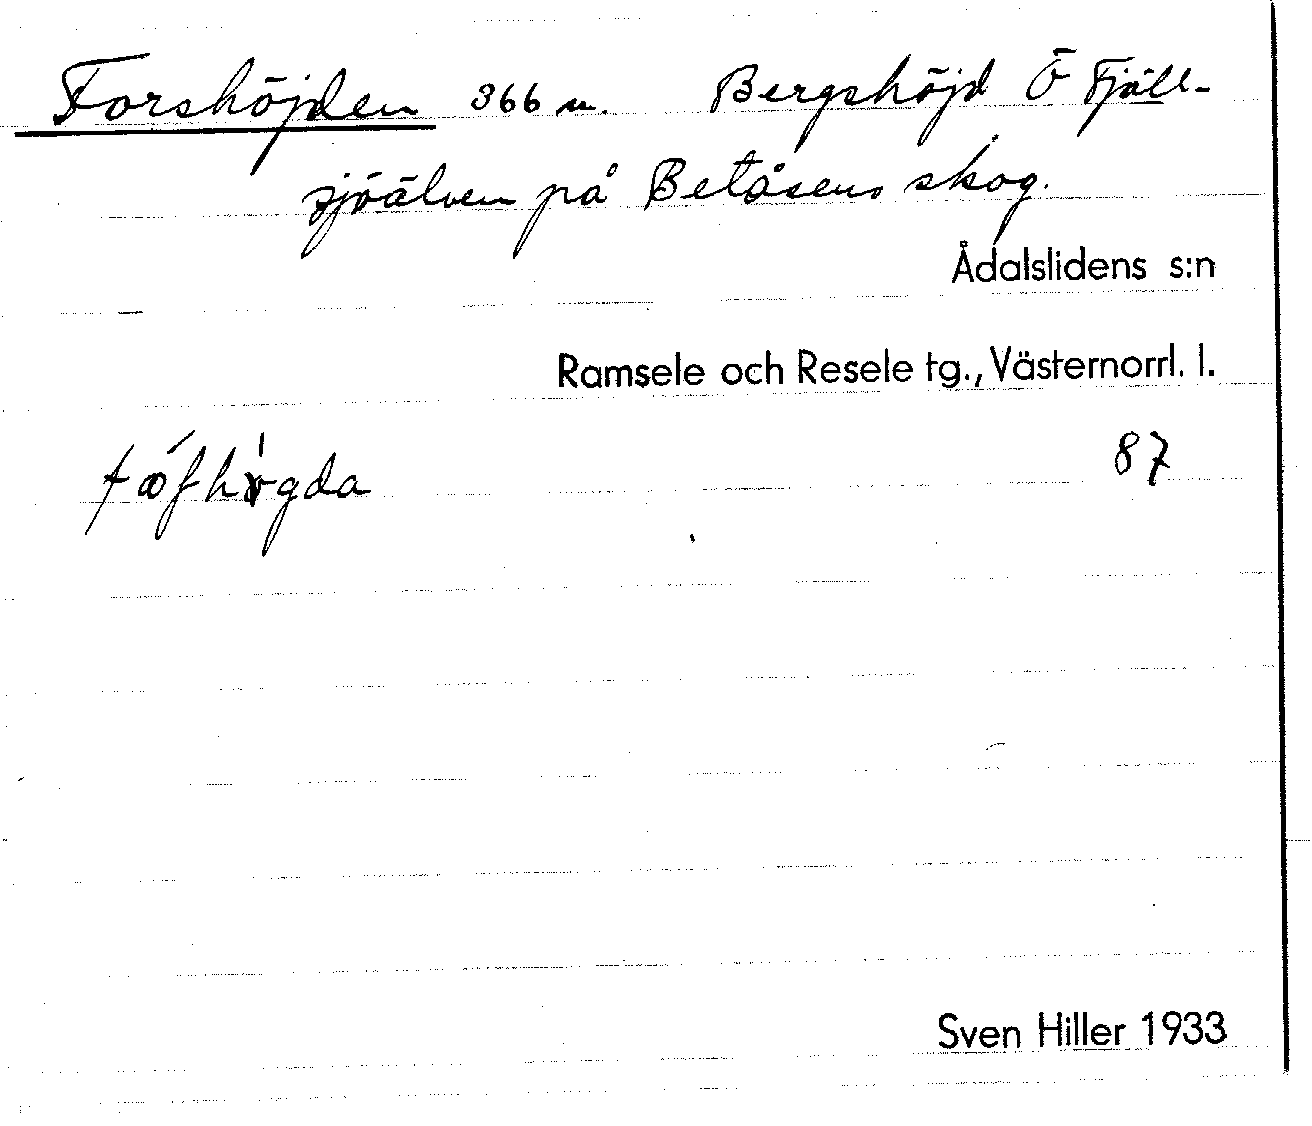 Forshöjden 366 m. Bergshöjd Ö Fjäll-
sjöälven på Betåsens skog.
Ådalslidens s:n
Ramsele och Resele tg., Västernorrl. l.
87
Sven Hiller 1933